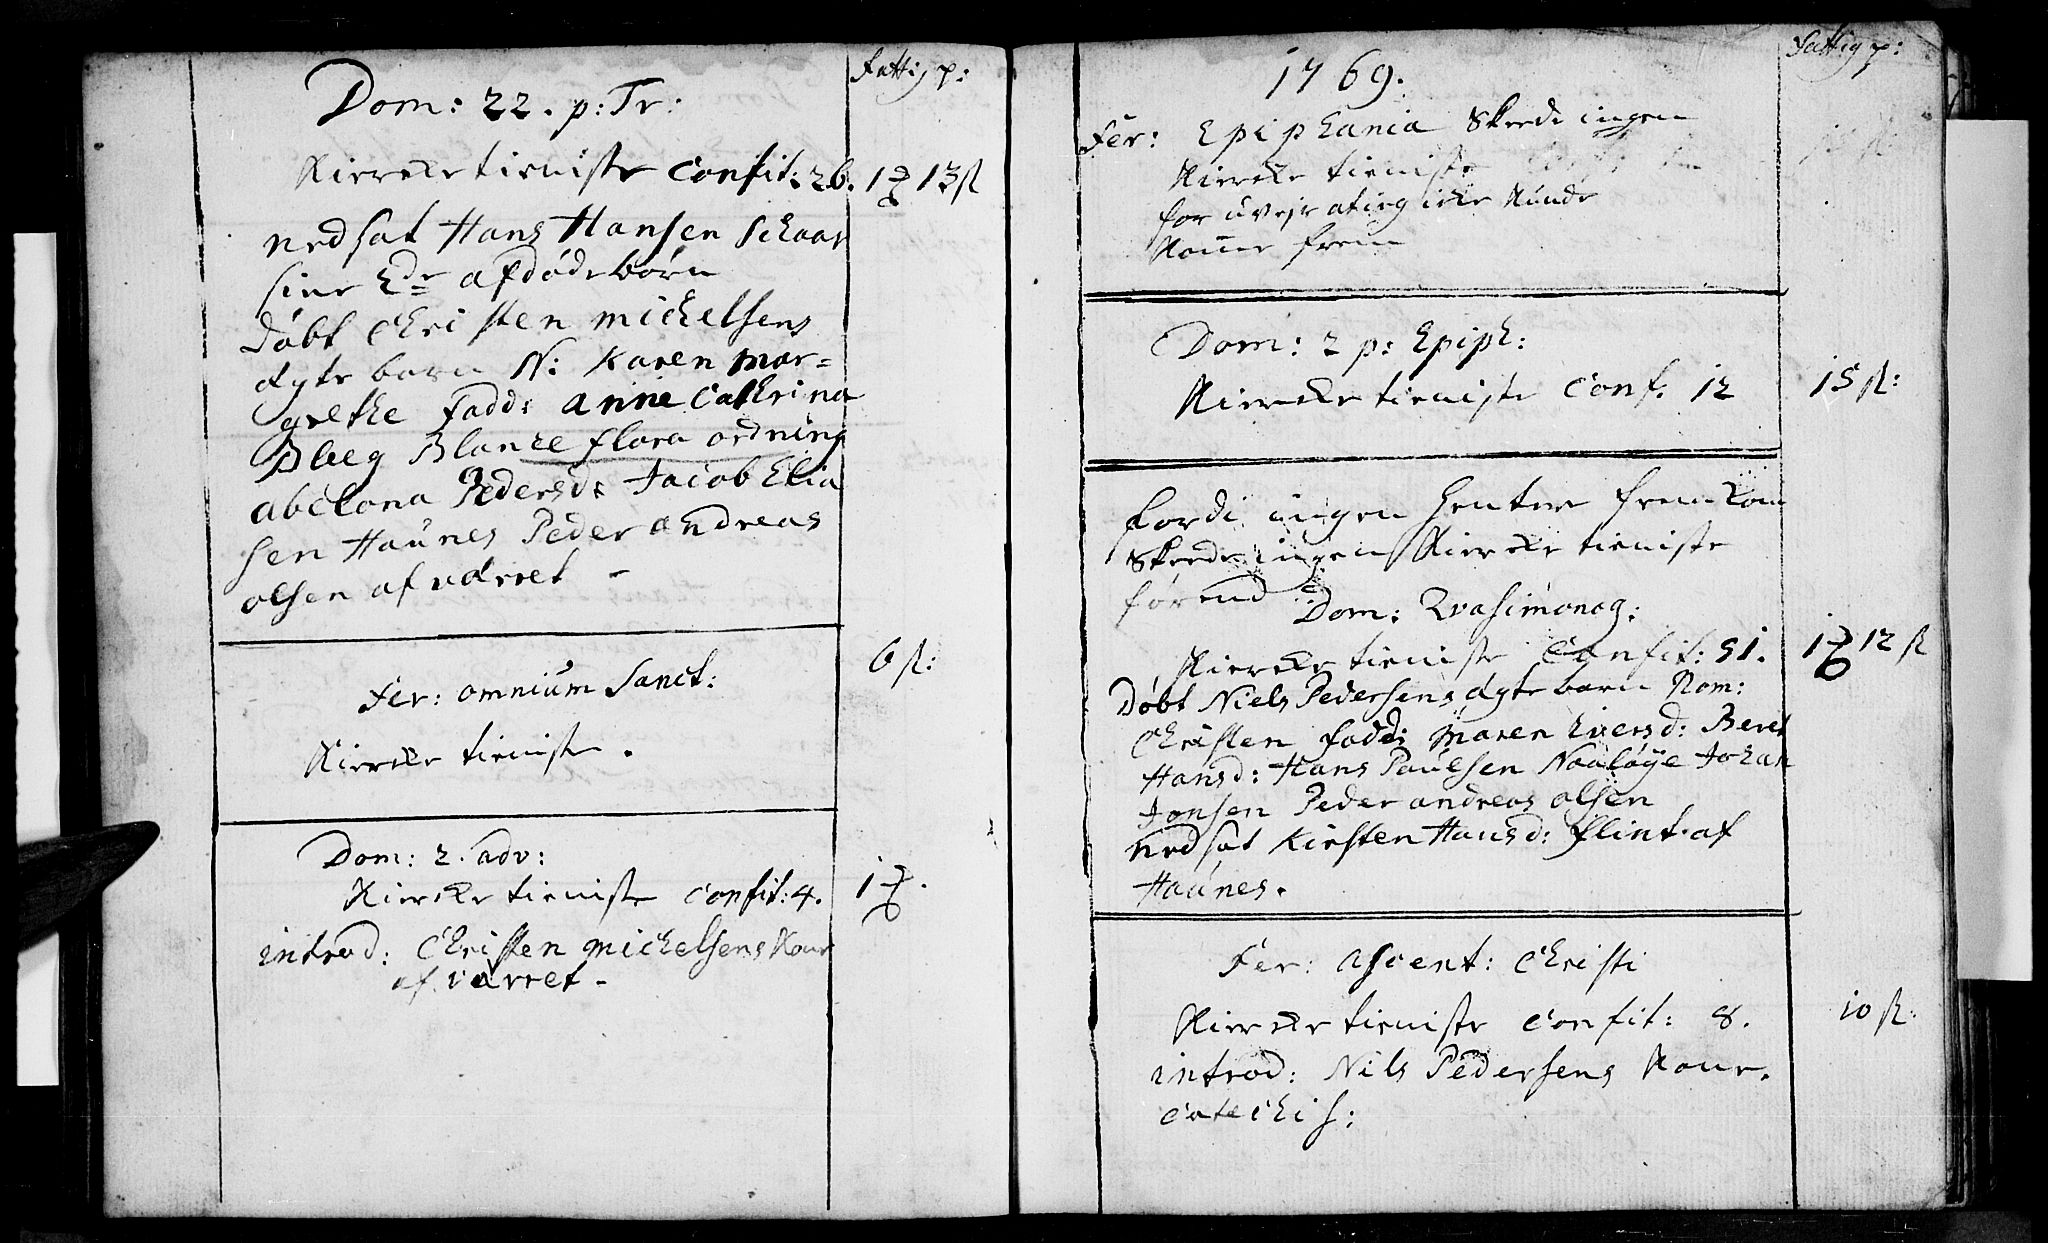 Fattig p:
Dom: 22. p: Tr:
Kierche tieniste Confit: 26. 1 13 ß
nedsat Hans Hansen Schaar
sine 2de afdöde börn
döbt Christen Michelsens
ægte barn N: Karen Mar=
grethe Fadd: Anne Cathrina
Bleeg Blanceflora ordning
Abelona Pedersd: Jacob Elia
sen Haunes Peder Andreas
olsen af værret -
6 ß:
Fer: omnium Sanct:
Kierche tieniste.
Dom: 2. adv:
Kierche tieniste Confit: 4. 1
introd: Christen Michelsens Kone
af værret -
Fattig p:
1769.
Fer: Epiphania Skeede ingen
Kierche tieniste
for uvejr at ieg icke Kunde
Kome frem
Dom: 2 p: Epiph:
Kierche tieniste Conf. 12 15 ß:
fordi ingen hentere fremkom
Skeede ingen Kierche tieniste
förend
Dom: Qvasimonog:
Kierche tieniste Confit: 51. 1 12 ß
Döbt Niels Pedersens ægte barn Nom:
Christen fadd: Maren Iversd: Beret
Hansd: Hans Paulsen Naaløye Johan
Jonsen Peder Andreas olsen
nedsat Kirsten Hansd: Flint af
Haunes.
Fer: Ascent: Christi
Kierche tieniste Confit: 8. 10 ß.
introd: Nils Pedersens Kone.
Catechis: